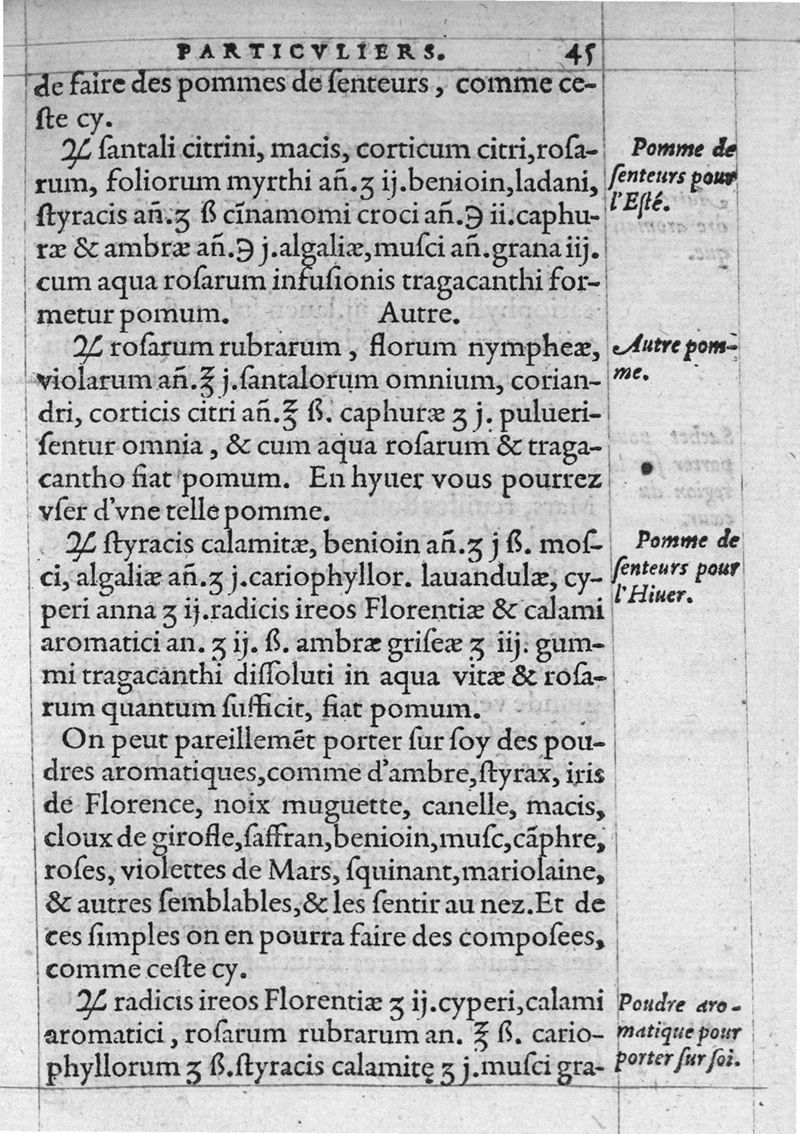 PARTICVLIERS. 45
de faire des pommes de ſenteurs, comme ce-
ſte cy.
℞ ſantali citrini, macis, corticum citri, roſa-
rum, foliorum myrthi añ.ʒ ij. benioin, ladani,
ſtyracis añ.ʒ ß cīnamomi croci añ.℈ ii. caphu-
ræ & ambræ añ.℈ j. algaliæ, muſci añ. grana iij.
cum aqua roſarum infuſionis tragacanthi for-
metur pomum. Autre.
℞ roſarum rubrarum, florum nympheæ,
violarum añ.℥ j. ſantalorum omnium, corian-
dri, corticis citri añ.℥ ß. caphuræ ʒ j. pulueri-
ſentur omnia, & cum aqua roſarum & traga-
cantho fiat pomum. En hyuer vous pourrez
vſer d'vne telle pomme.
℞ ſtyracis calamitæ, benioin añ.ʒ j ß. moſ-
ci, algaliæ añ.ʒ j. cariophyllor. lauandulæ, cy-
peri anna ʒ ij. radicis ireos Florentiæ & calami
aromatici an. ʒ ij. ß. ambræ griſeæ ʒ iij. gum-
mi tragacanthi diſſoluti in aqua vitæ & roſa-
rum quantum ſufficit, fiat pomum.
On peut pareillemẽt porter ſur ſoy des pou-
dres aromatiques, comme d'ambre, ſtyrax, iris
de Florence, noix muguette, canelle, macis,
cloux de girofle, ſaffran, benioin, muſc, cãphre,
roſes, violettes de Mars, ſquinant, mariolaine,
& autres ſemblables, & les ſentir au nez. Et de
ces ſimples on en pourra faire des compoſees,
comme ceſte cy.
℞ radicis ireos Florentiæ ʒ ij. cyperi, calami
aromatici, roſarum rubrarum an. ℥ ß. cario-
phyllorum ʒ ß. ſtyracis calamitę ʒ j. muſci gra-
Pomme de
ſenteurs pour
l'Eſté.
Autre pom-
me.
Pomme de
ſenteurs pour
l'Hiuer.
Poudre aro-
matique pour
porter ſur ſoi.